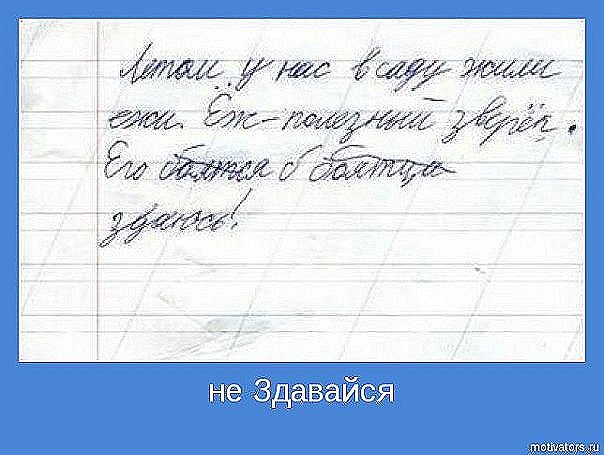 Летом у нас в саду жили
ежи. Ёж - полезный зверёк.
Его боятся б боятця
здаюсь!
не Здавайся
motivators.ru